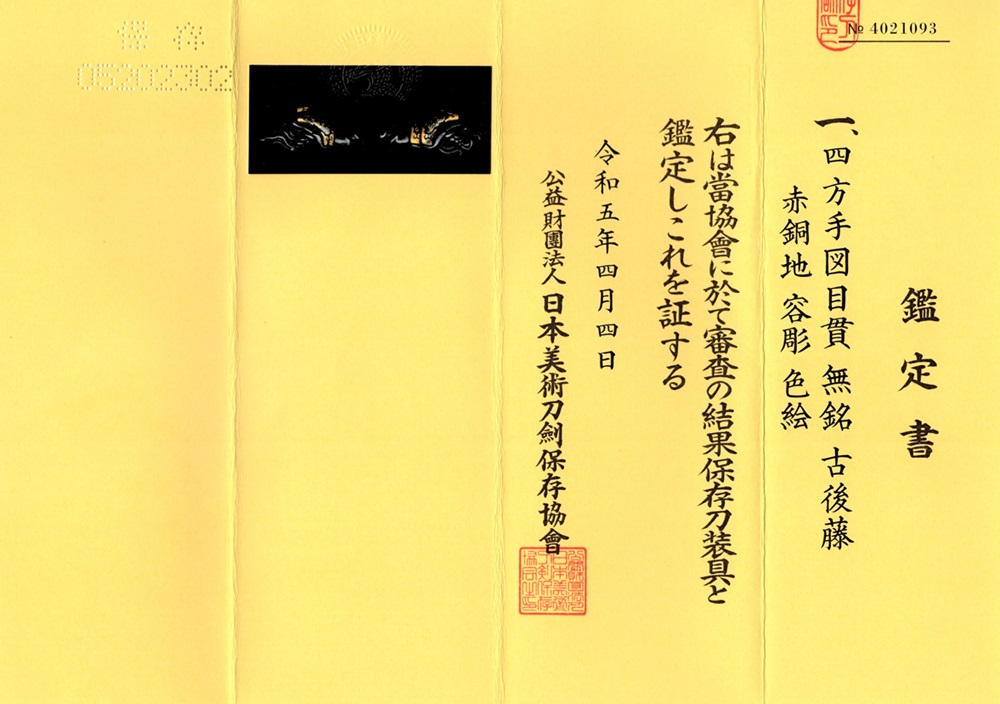 № 4021093
鑑定書
一、四方手図目貫 無銘 古後藤
赤銅地 容彫 色絵
右は當協會に於て審査の結果保存刀装具と
鑑定しこれを証する
令和五年四月四日
公益財團法人 日本美術刀劍保存協會
保存
05202302